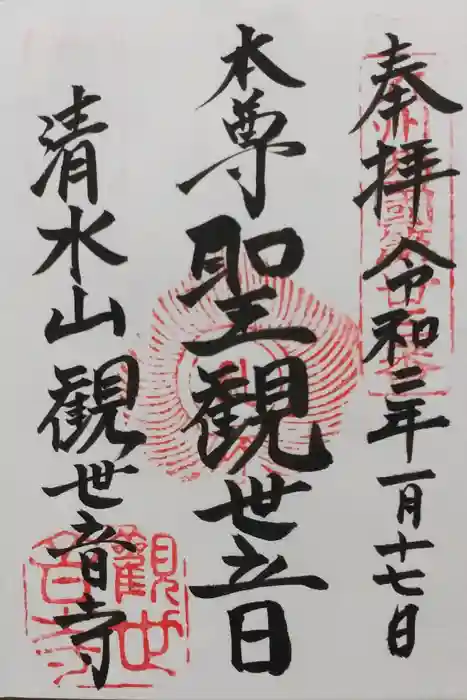 奉拝 令和三年一月十七日
本尊 聖観世音
清水山観世音寺
観世音寺